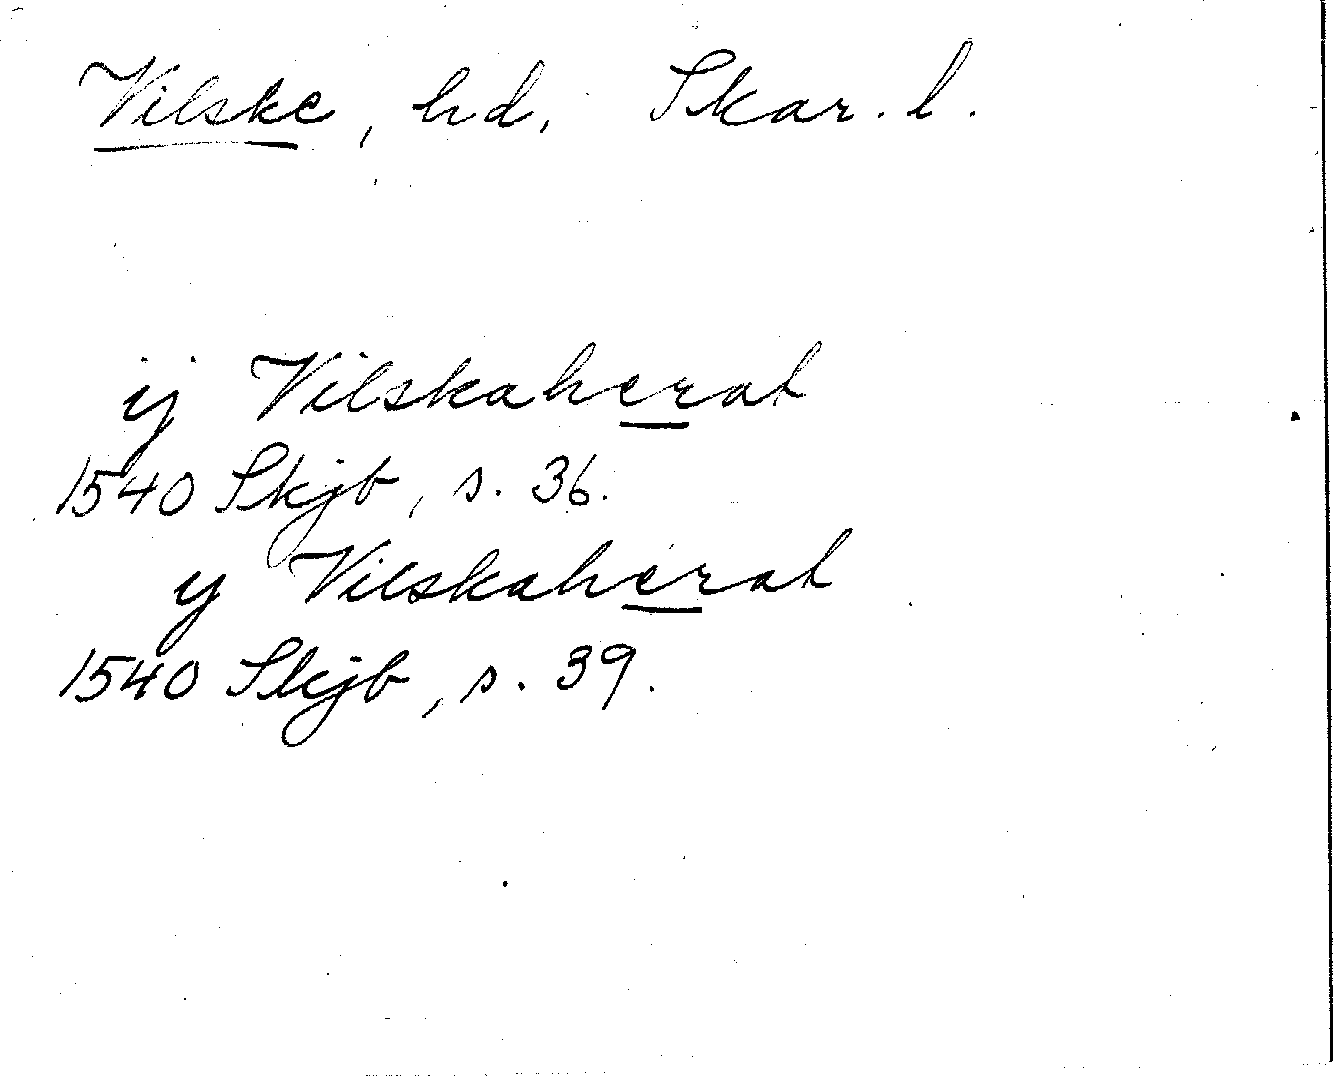 Vilske, hd, Skar. l.
ÿ Vilskaherat
1540 Skjb, s. 36.
y Vilskaherat
1540 Skjb, s. 39.